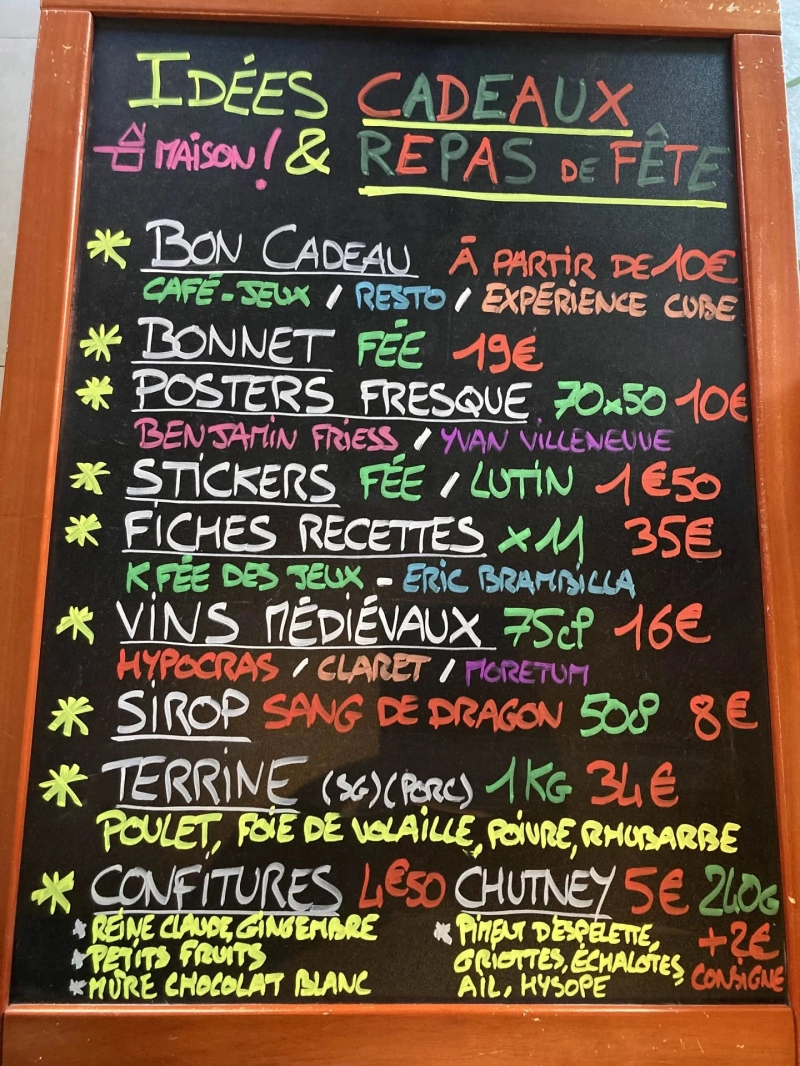 IDÉES CADEAUX
MAISON! & REPAS DE FÊTE
* BON CADEAU À PARTIR DE 10€
CAFÉ-JEUX / RESTO / EXPÉRIENCE CUBE
* BONNET FÉE 19€
* POSTERS FRESQUE 70x50 10€
BENJAMIN FRIESS / YVAN VILLENEUVE
* STICKERS FÉE / LUTIN 1€50
* FICHES RECETTES x11 35€
K FÉE DES JEUX - ERIC BRAMBILLA
* VINS MÉDIÉVAUX 75cl 16€
HYPOCRAS / CLARET / MORETUM
* SIROP SANG DE DRAGON 50cl 8€
* TERRINE (SG) (PORC) 1KG 34€
POULET, FOIE DE VOLAILLE, POIVRE, RHUBARBE
* CONFITURES 4€50 CHUTNEY 5€ 240G
* REINE CLAUDE, GINGEMBRE
* PETITS FRUITS
* MÛRE CHOCOLAT BLANC
* PIMENT D'ESPELETTE,
GRIOTTES, ÉCHALOTES,
AIL, HYSOPE
+2€
CONSIGNE